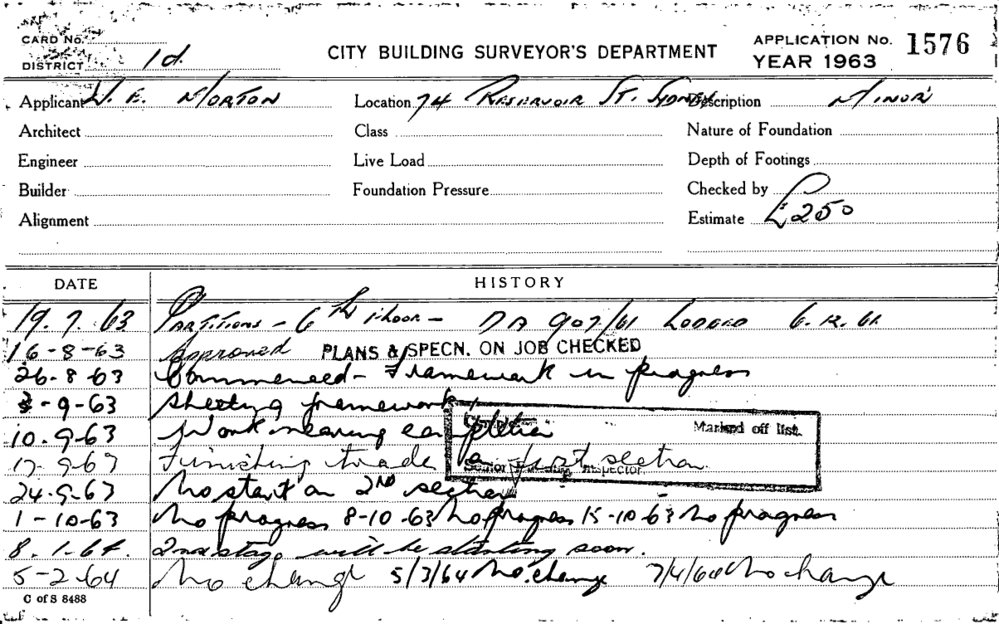 CARD No.
DISTRICT 1d.
CITY BUILDING SURVEYOR'S DEPARTMENT
APPLICATION No. 1576
YEAR 1963
Applicant W. E. MORTON Location 74 RESERVOIR ST. SYDNEY Description MINOR
Architect Class Nature of Foundation
Engineer Live Load Depth of Footings
Builder Foundation Pressure Checked by
Alignment Estimate £250
DATE HISTORY
19.7.63 PARTITIONS - 6TH Floor - DA 907/61 LODGED 6.12.61
16-8-63 Approved PLANS & SPECN. ON JOB CHECKED
26-8-63 Commenced - Framework in progress
3-9-63 Sheeting framework
10.9.63 Work nearing completion Marked off list.
17.9.63 Finishing trade on first section Senior Building Inspector
24-9-63 No start on 2ND section
1-10-63 No progress 8-10-63 No progress 15-10-63 No progress
8.1.64. 2nd stage will be starting soon.
5-2-64 No change 5/3/64 No change 7/4/64 No change
C of S 8488